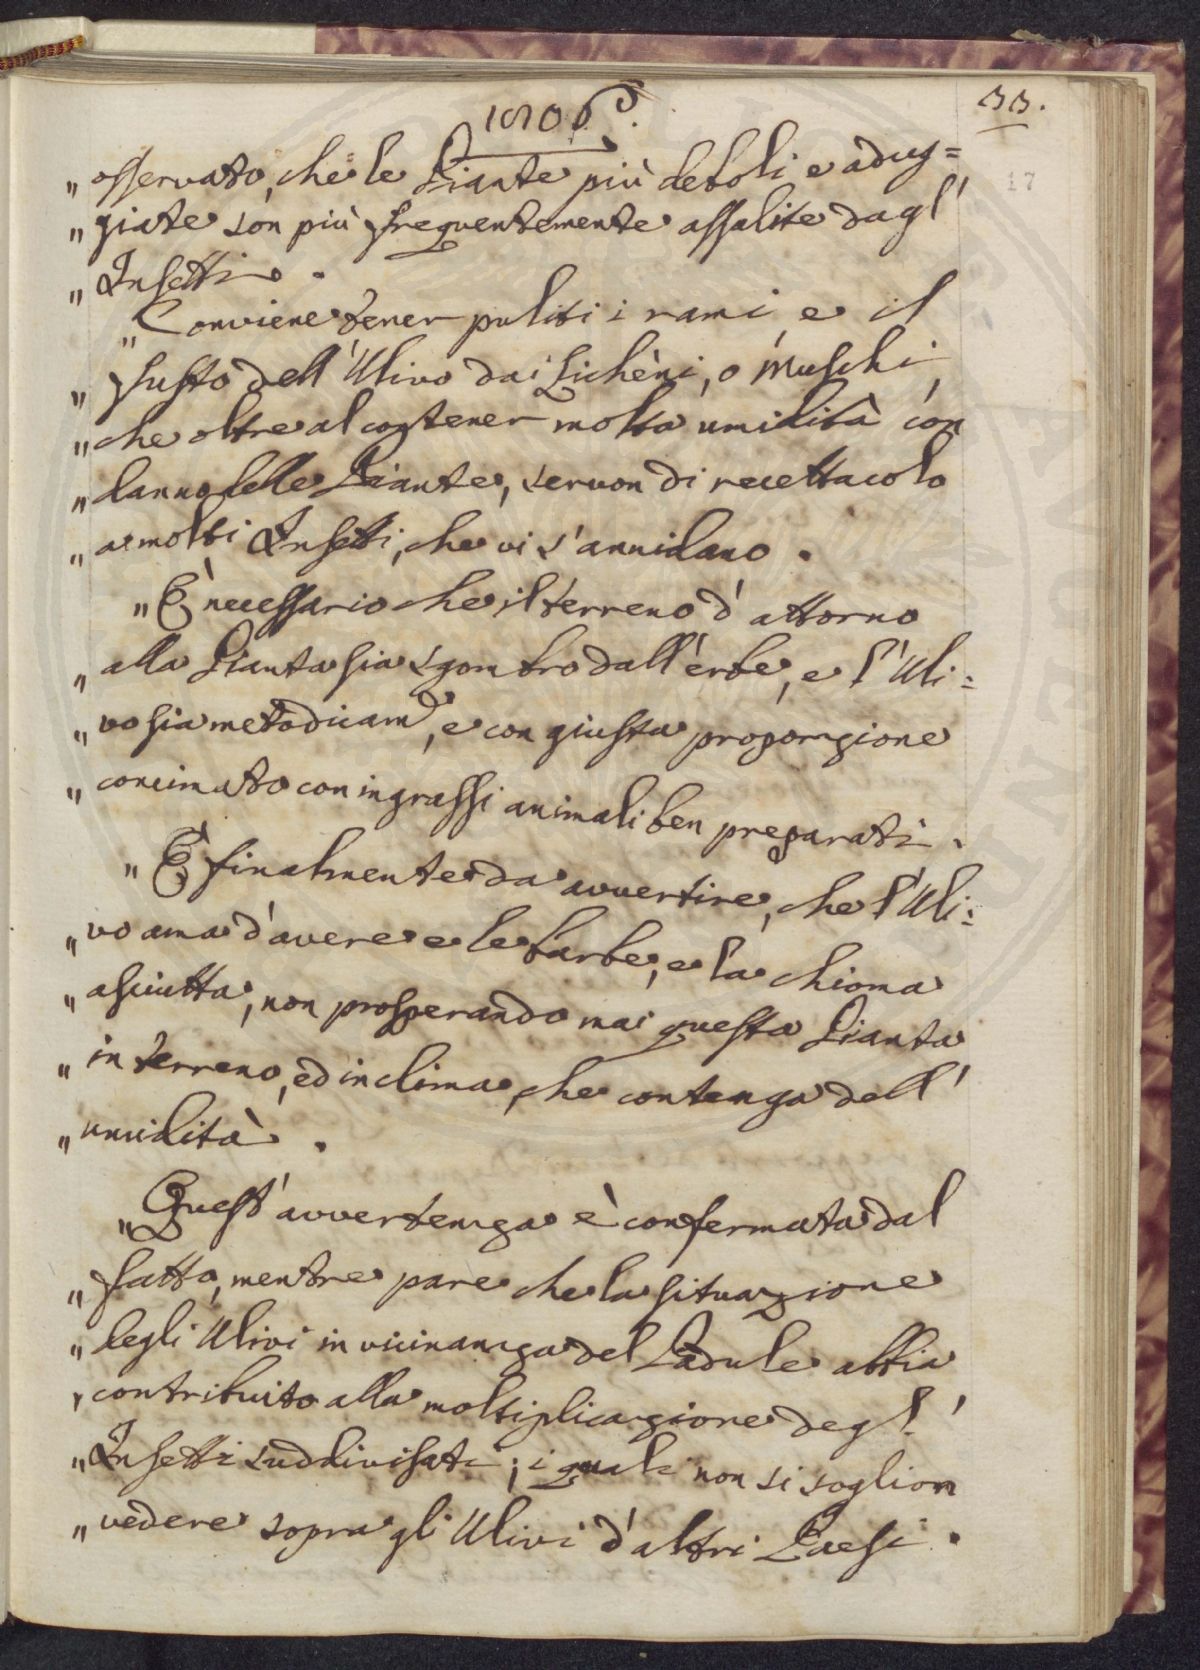 1806.
33.
17
„ osservato, che le Piante più deboli e adug=
„ giate son più frequentemente assalite dagl'
„ Insetti.
„ Conviene tener puliti i rami, e il
„ fusto dell'Ulivo dai Lichèni, o Muschi,
„ che oltre al contener molta umidità con
„ danno delle Piante, servon di recettacolo
„ a molti Insetti, che vi s'annidano.
„ È necessario che il terreno d'attorno
„ alla Pianta sia sgombro dall'erbe, e l'Uli=
„ vo sia metodicam.e, e con giusta proporzione
„ concimato con ingrassi animali ben preparati.
„ È finalmente da avvertire, che l'Uli=
„ vo ama d'avere e le barbe, e la chioma
„ asciutta, non prosperando mai questa Pianta
„ in terreno, ed in clima, che contenga dell'
„ umidità.
„ Quest'avvertenza è confermata dal
„ fatto, mentre pare che la situazione
„ degli Ulivi in vicinanza del Padule abbia
„ contribuito alla moltiplicazione degl'
„ Insetti suddivisati; i quali non si soglion
„ vedere sopra gli Ulivi d'altri Paesi.